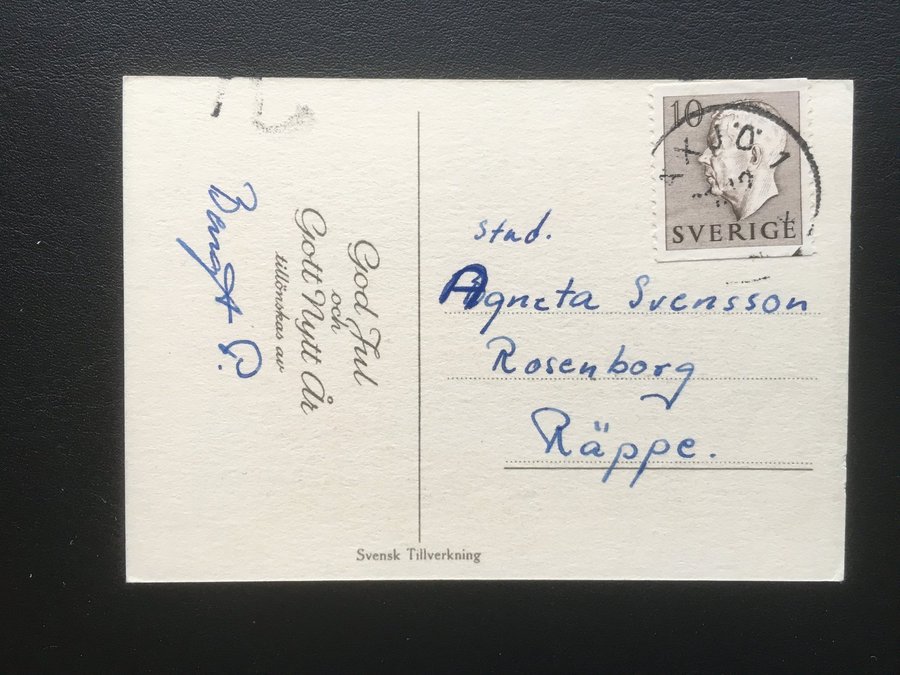 God Jul
och
Gott Nytt År
tillönskas av
Bengt P.
10
SVERIGE
stud.
Agneta Svensson
Rosenborg
Räppe.
Svensk Tillverkning